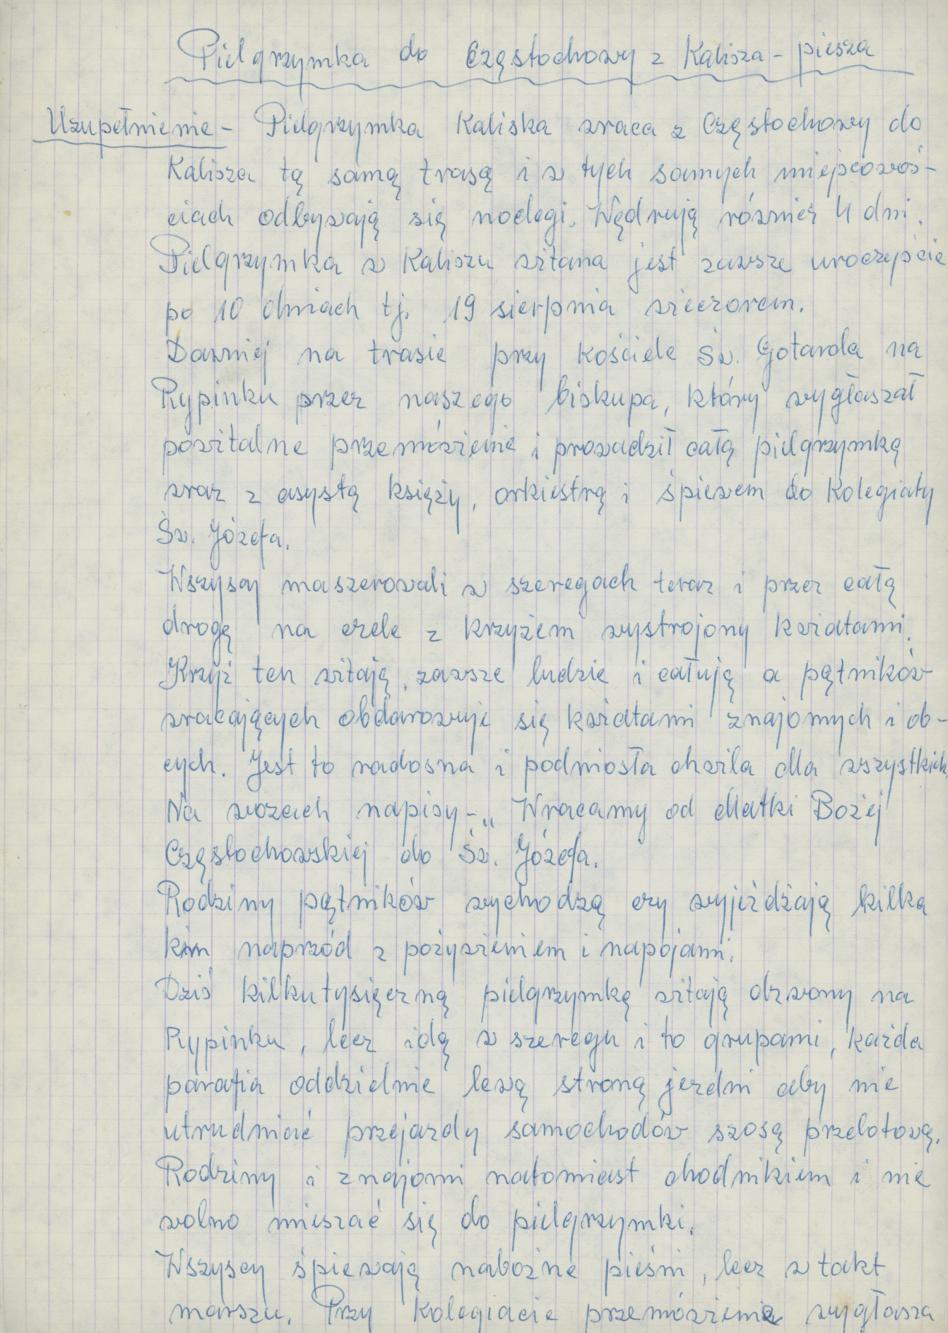 Pielgrzymka do Częstochowy z Kalisza - piesza
Uzupełnienie - Pielgrzymka Kaliska wraca z Częstochowy do
Kalisza tą samą trasą i w tych samych miejscowoś-
ciach odbywają się noclegi. Wędrują również 4 dni.
Pielgrzymka w Kaliszu witana jest zawsze uroczyście
po 10 dniach tj. 19 sierpnia wieczorem.
Dawniej na trasie przy kościele Św. Gotarda na
Rypinku przez naszego biskupa, który wygłaszał
powitalne przemówienie i prowadził całą pielgrzymką
wraz z asystą księży, orkiestrą i śpiewem do Kolegiaty
Św. Józefa.
Wszyscy maszerowali w szeregach teraz i przez całą
drogę na czele z krzyżem wystrojony kwiatami.
Krzyż ten witają zawsze ludzie i całują a pątników
wracających obdarowuje się kwiatami znajomych i ob-
cych. Jest to radosna i podniosła chwila dla wszystkich
Na wozach napisy - „Wracamy od Matki Bożej
Częstochowskiej do Św. Józefa.
Rodziny pątników wychodzą czy wyjeżdżają kilka
kim naprzód z pożywieniem i napojami.
Dziś kilkutysięczną pielgrzymkę witają dzwony na
Rypinku, lecz idą w szeregu i to grupami, każda
parafia oddzielnie lewą stroną jezdni aby nie
utrudniać przejazdy samochodów szosą przelotową.
Rodziny i znajomi natomiast chodnikiem i nie
wolno mieszać się do pielgrzymki.
Wszyscy śpiewają nabożne pieśni, lecz w takt
marszu. Przy Kolegiacie przemówienie wygłasza